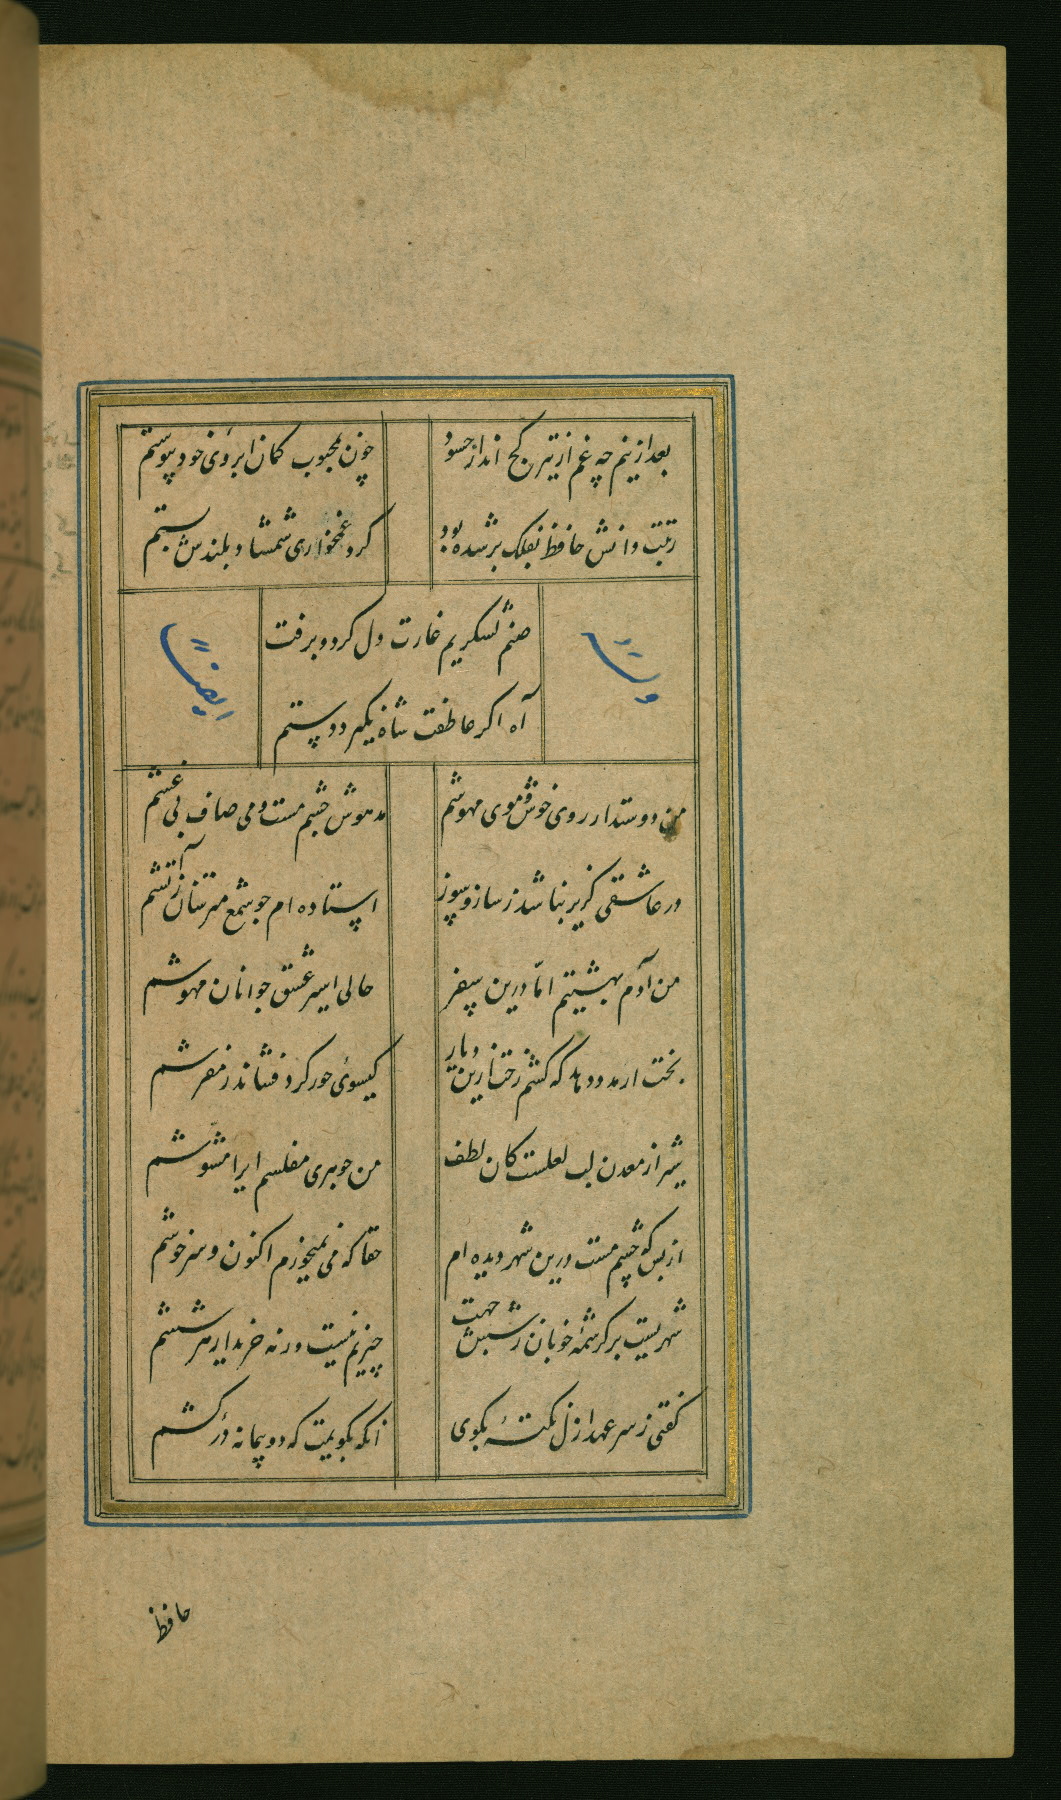 بعد ازینم چه غم از تیر کج انداز حسود
چون بمحبوب کمان ابروی خود پیوستم
رتبت دانش حافظ بفلک بر شده بود
کرد غمخواری شمشاد بلندش پستم
صنم لشکریم غارت دل کرد و برفت
آه اگر عاطفت شاه نگیرد دستم
وله
ایضا
من دوستدار روی خوش و موی مهوشم
مدهوش چشم مست و می صاف بی غشم
در عاشقی گزیر نباشد ز ساز و سوز
استاده ام چو شمع مترسان ز آتشم
من آدم بهشتیم اما درین سفر
حالی اسیر عشق جوانان مهوشم
بخت ار مدد دهد که کشم رخت ازین دیار
گیسوی حور گرد فشاند ز مفرشم
شیراز معدن لب لعلست کان لطف
من جوهری مفلسم ایرا مشوشم
از بس که چشم مست درین شهر دیده ام
حقا که می نمیخورم اکنون و سرخوشم
شهریست پر کرشمهٔ خوبان ز شش جهت
چیزیم نیست ورنه خریدار هر ششم
گفتی ز سر عهد ازل نکتهٔ بگوی
آنگه بگویمت که دو پیمانه در کشم
حافظ